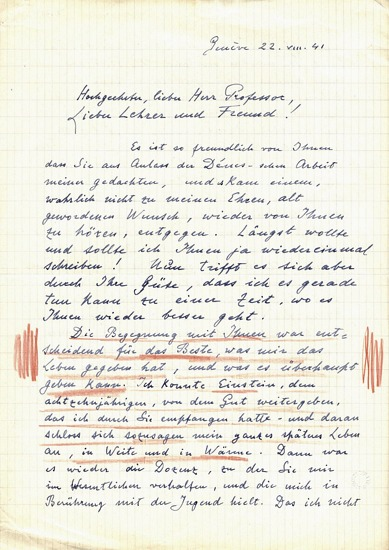 Genève 22. VIII. 41
Hochgeehrter, lieber Herr Professor,
Lieber Lehrer und Freund!
Es ist so freundlich von Ihnen
dass Sie aus Anlass der Dénes-schen Arbeit
meiner gedachten, und kam einem,
wahrlich nicht zu meinen Ehren, alt
gewordenen Wunsch, wieder von Ihnen
zu hören, entgegen. Längst wollte
und sollte ich Ihnen ja wiedereinmal
schreiben! Nun trifft es sich aber
durch Ihre Güte, dass ich es gerade
tun kann zu einer Zeit, wo es
Ihnen wieder besser geht.
Die Begegnung mit Ihnen war ent-
scheidend für das Beste, was mir das
Leben gegeben hat, und was es überhaupt
geben kann. Ich konnte Einstein, dem
achtzehnjährigen, von dem Gut weitergeben,
das ich durch Sie empfangen hatte - und daran
schloss sich sozusagen mein ganzes späteres Leben
an, in Weite und in Wärme. Dann war
es wieder die Dozenz, zu der Sie mir
im Wesentlichen verhalfen, und die mich in
Berührung mit der Jugend hielt. Das ich nicht